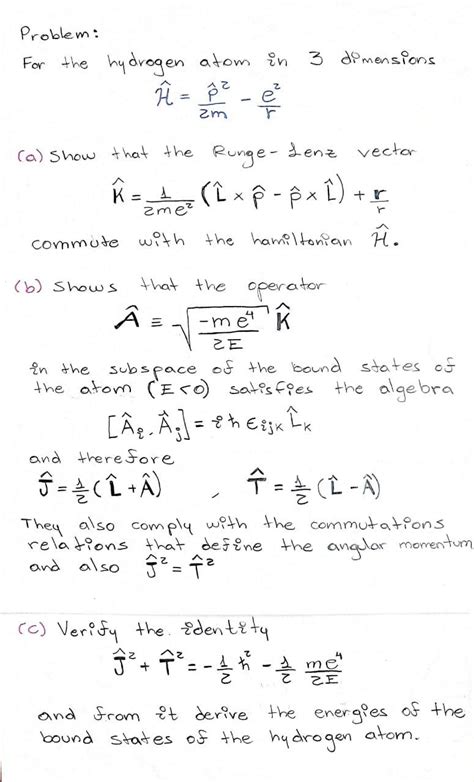 Problem:
For the hydrogen atom in 3 dimensions
Ĥ = p̂²/2m - e²/r
(a) Show that the Runge-Lenz vector
K̂ = 1/2me² (L̂ × p̂ - p̂ × L̂) + r/r
commute with the hamiltonian Ĥ.
(b) Shows that the operator
Â ≡ √(-me⁴/2E) K̂
in the subspace of the bound states of
the atom (E<0) satisfies the algebra
[Âᵢ, Âⱼ] = iℏ Єijk L̂k
and therefore
Ĵ = 1/2 (L̂ + Â) , T̂ = 1/2 (L̂ - Â)
They also comply with the commutations
relations that define the angular momentum
and also Ĵ² = T̂²
(c) Verify the identity
Ĵ² + T̂² = -1/2 ℏ² - 1/2 me⁴/2E
and from it derive the energies of the
bound states of the hydrogen atom.